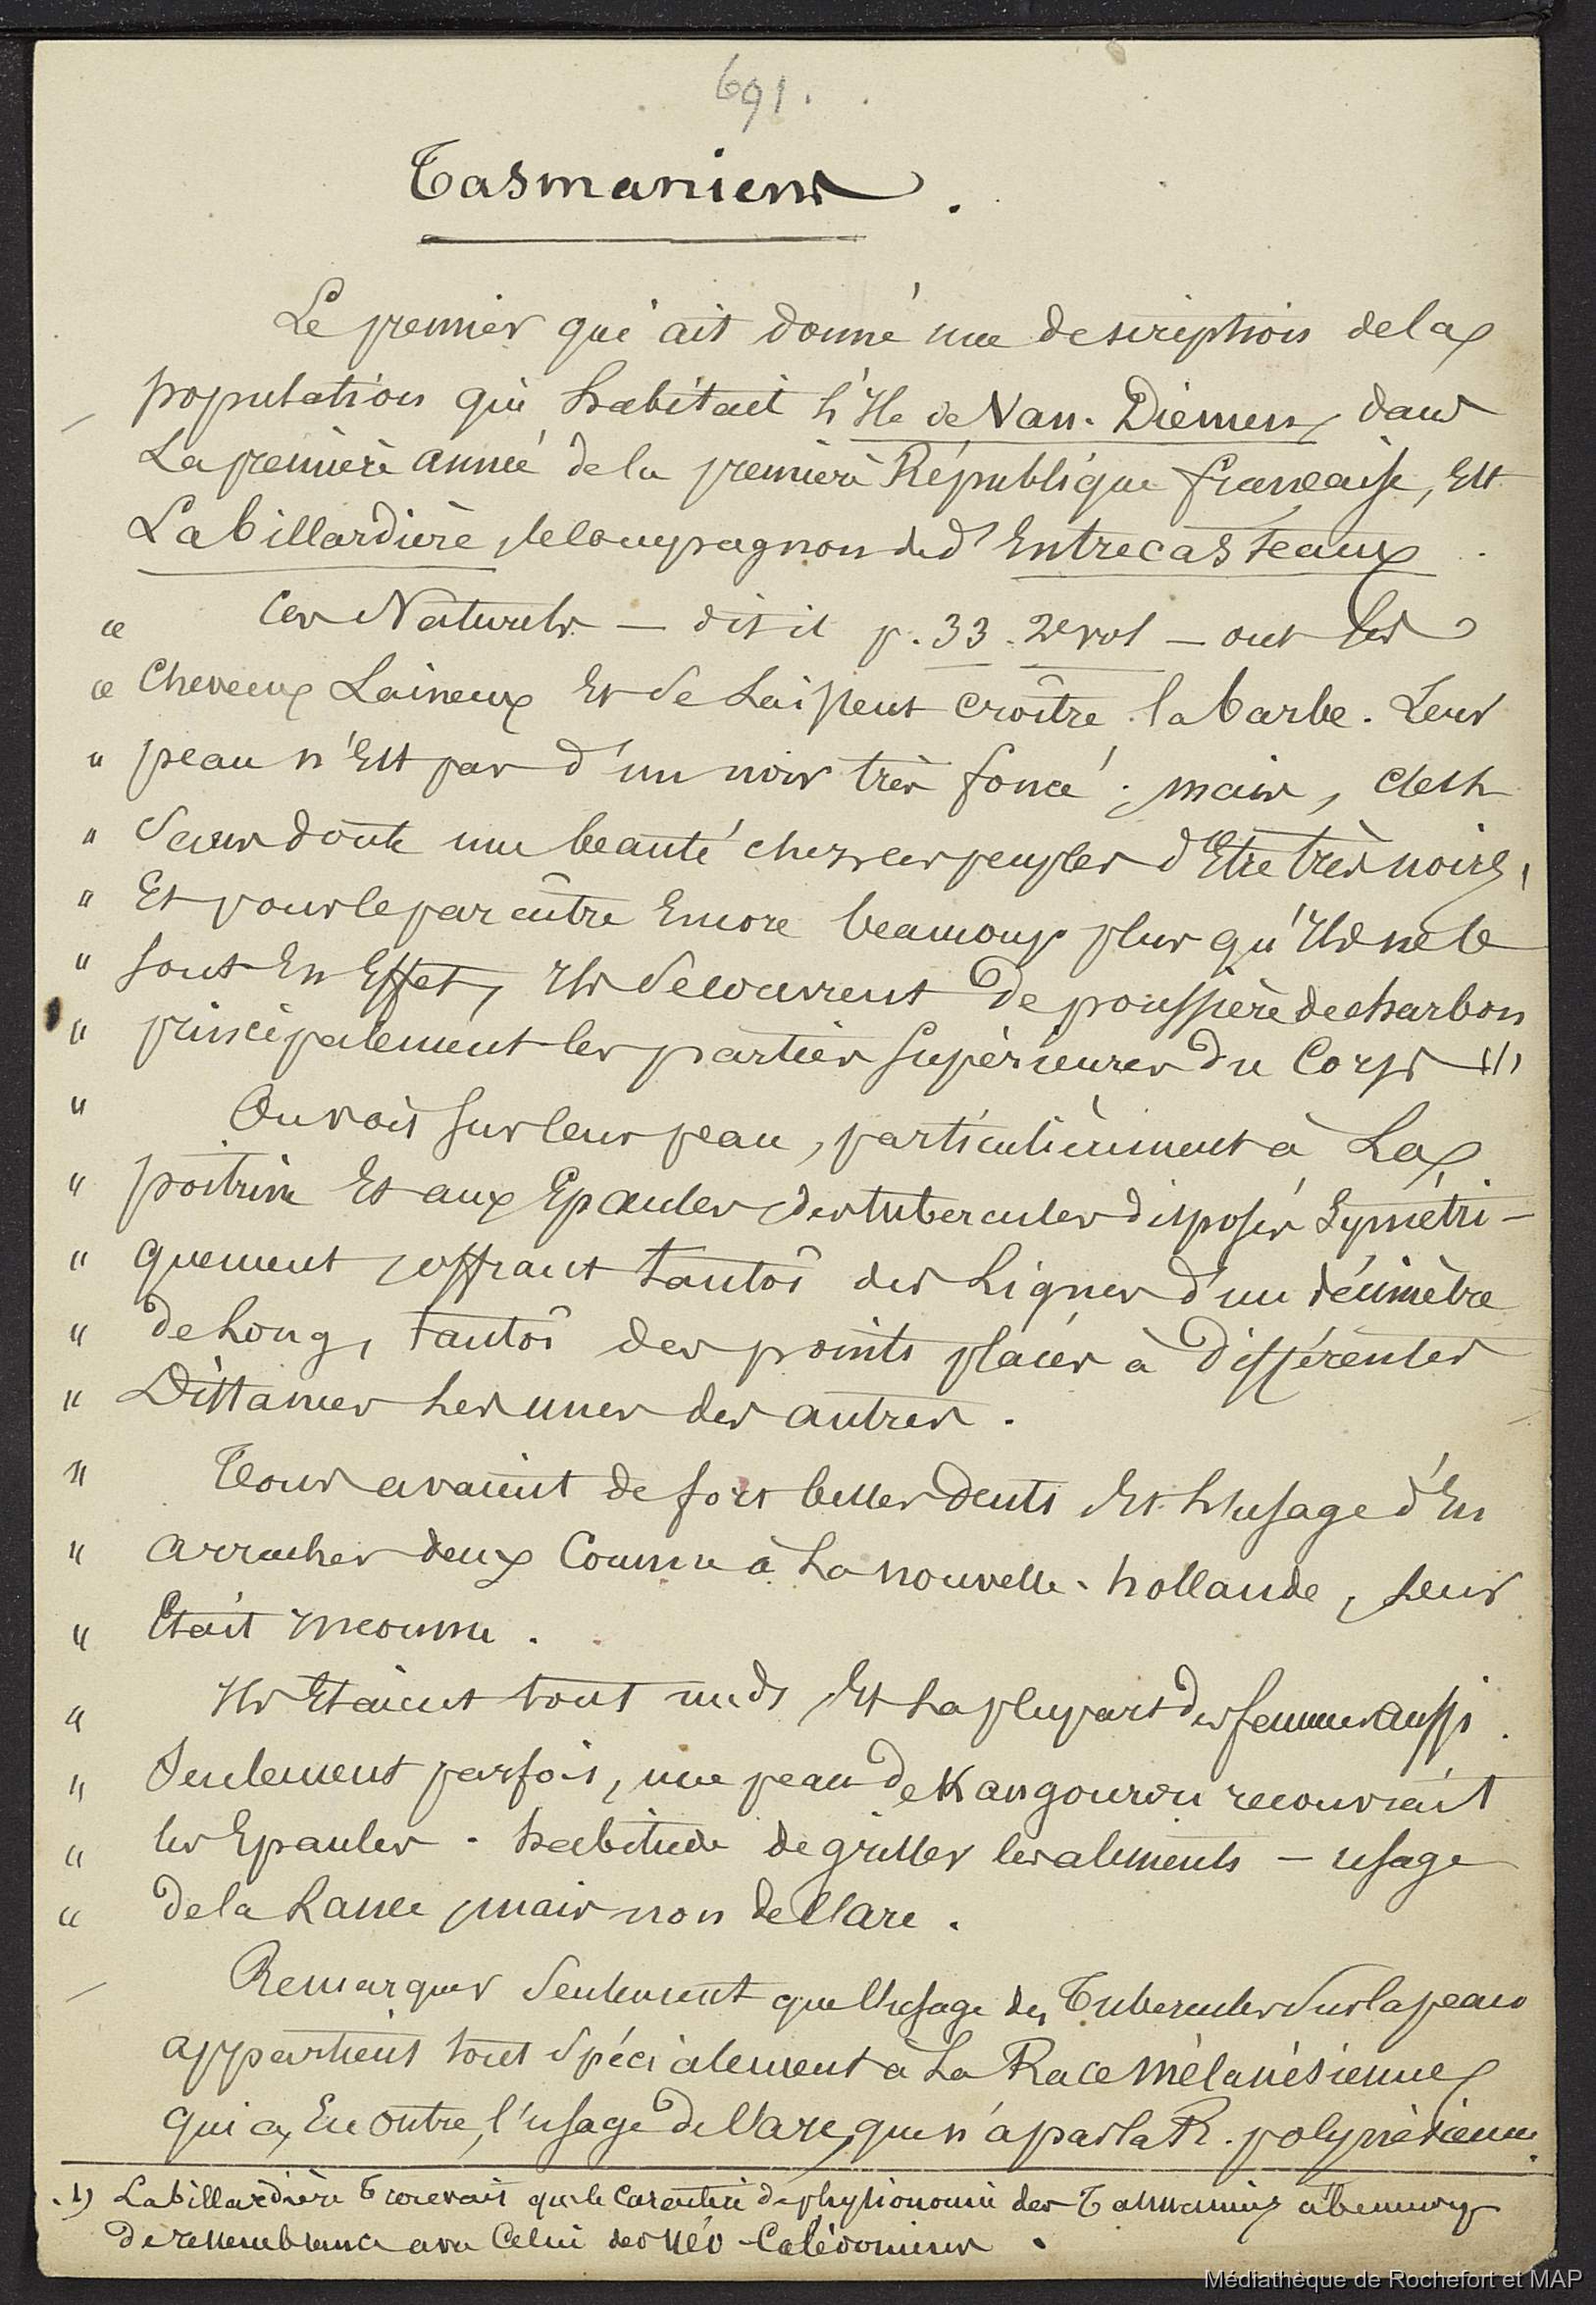 691.
Tasmaniens.
Le premier qui ait donné une description de la
population qui habitait l'Ile de Van-Diemen, dans
La première année de la première République française, Est
Labillardière, le compagnon de d'Entrecasteaux.
" Ces Naturels — dit il p. 33. 2e vol — ont les
" Cheveux Laineux Et se Laissent croître la barbe. Leur
" peau n'Est pas d'un noir très foncé; mais, c'est
" Sans doute une beauté chez ces peuples d'Etre très noirs,
" Et pour le paraître Encore beaucoup plus qu'Ils ne le
" sont En Effet, Ils se couvrent de poussière de charbon
" principalement les parties supérieures du Corps (1)
" On voit sur leur peau, particulièrement à La
" poitrine Et aux Epaules, des tubercules disposés Symétri-
" quement, offrant tantôt des Lignes d'un décimètre
" de Long, tantôt des points placés à différentes
" Distances Les unes des autres.
" Tous avaient de fort belles dents Et L'usage d'En
" arracher deux Comme à La nouvelle-hollande, Leur
" Etait inconnu.
" Ils Etaient tout nuds Et La plupart des femmes aussi.
" Seulement parfois, une peau de Kangourou recouvrait
" les Epaules. habitude de griller les aliments — usage
" de la Lance, mais non de l'arc.
Remarquer seulement que l'usage des Tubercules sur la peau
appartient tout spécialement à La Race mélanésienne
qui a, En outre, l'usage de l'arc, que n'a pas la R. polynésienne.
1) Labillardière trouvait que le caractère de physionomie des Tasmaniens a beaucoup
de ressemblance avec Celui des néo-Calédoniens.
Médiathèque de Rochefort et MAP